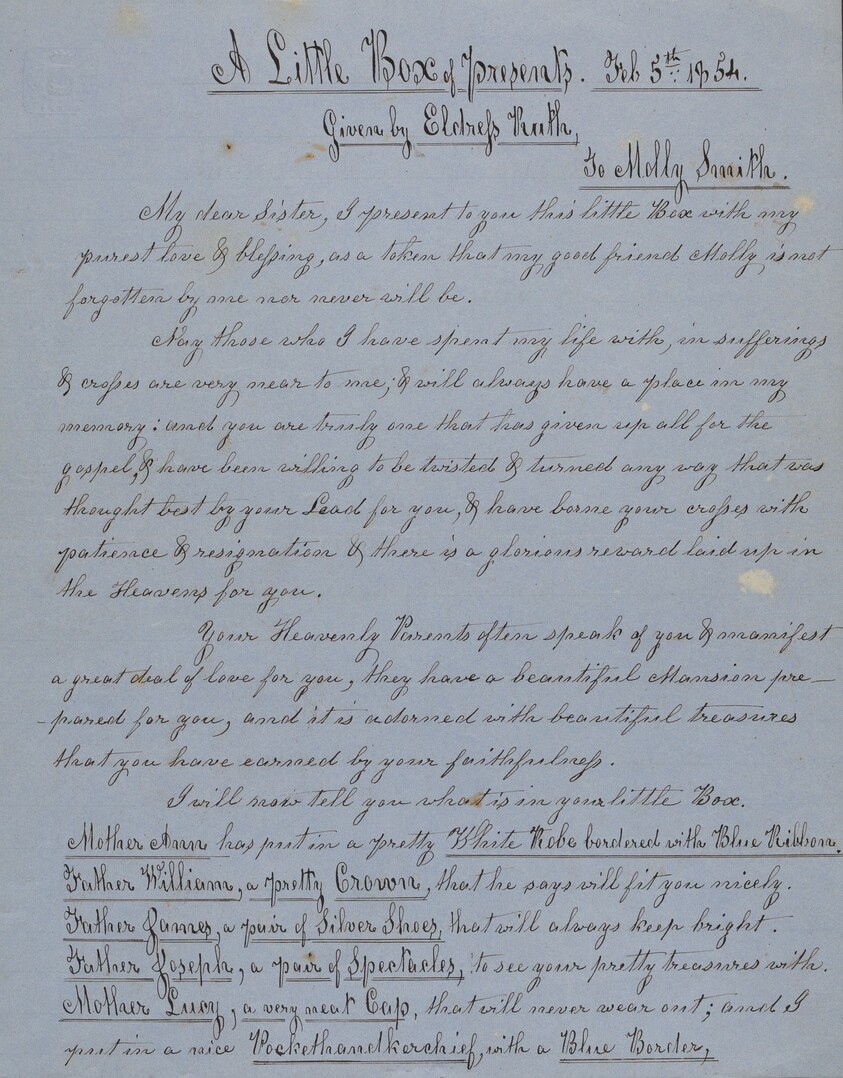 A Little Box of Presents. Feb 5th 1854.
Given by Eldress Ruth,
To Molly Smith.
My dear Sister, I present to you this little Box with my
purest love & blessing, as a token that my good friend Molly is not
forgotten by me nor never will be.
Nay those who I have spent my life with, in sufferings
& crosses are very near to me; & will always have a place in my
memory: and you are truly one that has given up all for the
gospel, & have been willing to be twisted & turned any way that was
thought best by your Lead for you, & have borne your crosses with
patience & resignation & there is a glorious reward laid up in
the Heavens for you.
Your Heavenly Parents often speak of you & manifest
a great deal of love for you, they have a beautiful Mansion pre-
-pared for you, and it is adorned with beautiful treasures
that you have earned by your faithfulness.
I will now tell you what is in your little Box.
Mother Ann has put in a pretty White Robe bordered with Blue Ribbon.
Father William, a pretty Crown, that he says will fit you nicely.
Father James, a pair of Silver Shoes, that will always keep bright.
Father Joseph, a pair of Spectacles, to see your pretty treasures with.
Mother Lucy, a very neat Cap, that will never wear out; and I
put in a nice Pockethandkerchief, with a Blue Border,